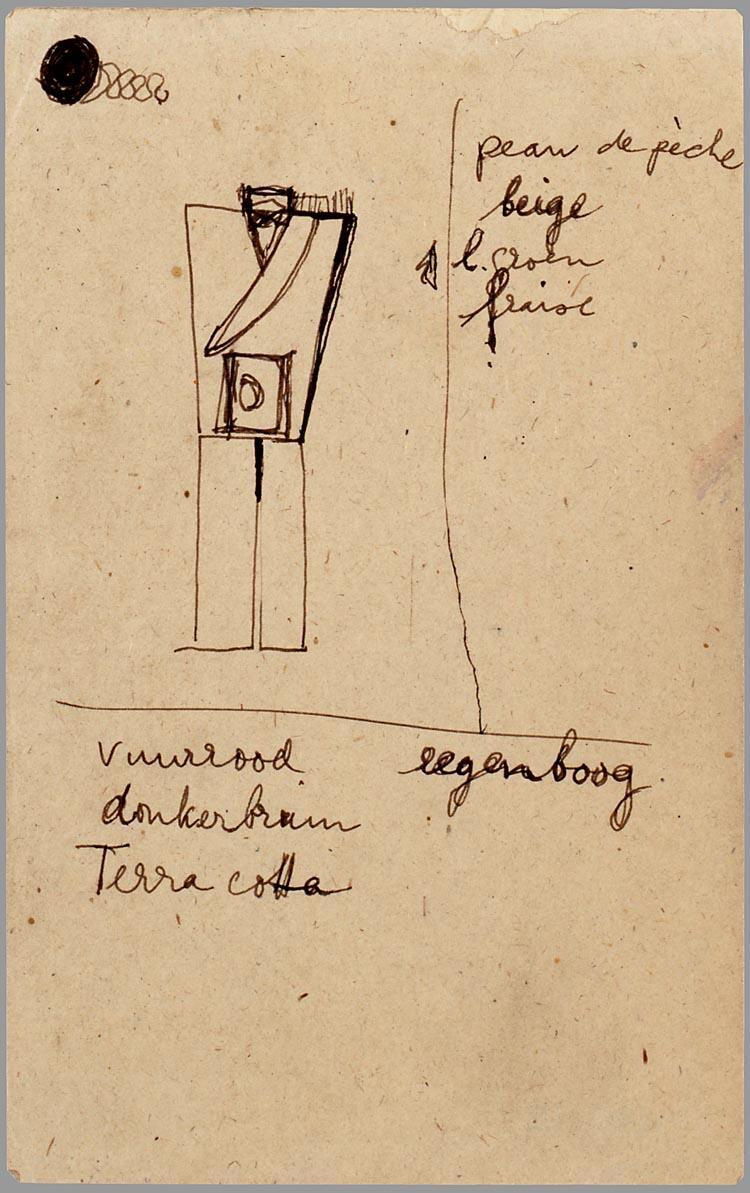 peau de pèche
beige
l. groen
fraise
vuurrood
regenboog
donkerbruin
Terra cotta